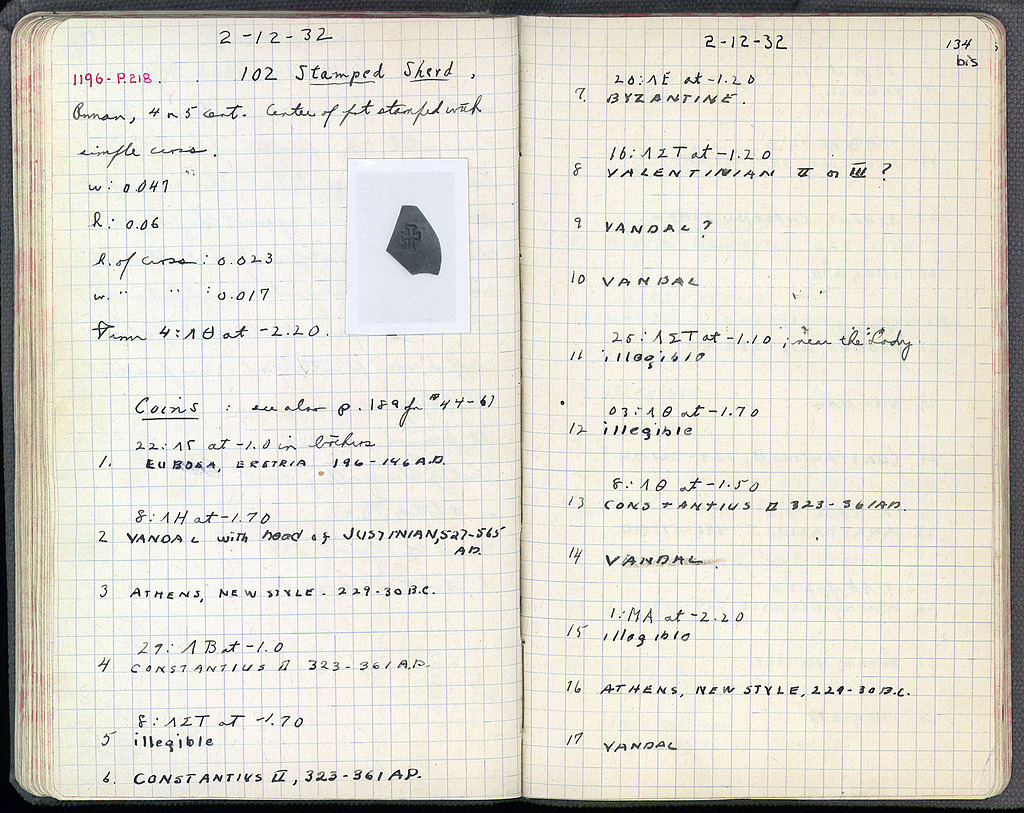 2-12-32
1196-P.218. 102 Stamped Sherd.
Roman, 4 or 5 cent. Center of pot stamped with
simple cross.
w: 0.047
h: 0.06
h. of cross: 0.023
w. " " : 0.017
From 4:ΛΘ at -2.20.
Coins : see also p. 189 for #44-61
22:ΛΓ at -1.0 in
1. EUBOEA, ERETRIA 196-146 A.D.
8:ΛH at -1.70
2 VANDAL with head of JUSTINIAN, 527-565
A.D.
3 ATHENS, NEW STYLE - 229-30 B.C.
29:ΛB at -1.0
4 CONSTANTIUS II 323-361 A.D.
8:ΛΣT at -1.70
5 illegible
6. CONSTANTIUS II, 323-361 AD.
2-12-32
134
bis
20:ΛE at -1.20
7. BYZANTINE.
16:ΛΣT at -1.20
8 VALENTINIAN II or III ?
9 VANDAL?
10 VANDAL
25:ΛΣT at -1.10; near the Lady
11 illegible
03:ΛΘ at -1.70
12 illegible
8:ΛΘ at -1.50
13 CONSTANTIUS II 323-361 AD.
14 VANDAL.
1:MA at -2.20
15 illegible
16 ATHENS, NEW STYLE, 229-30 B.C.
17 VANDAL